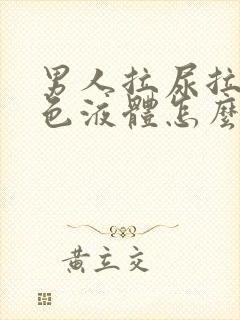 男人拉尿拉
色液體怎麼
黃立交